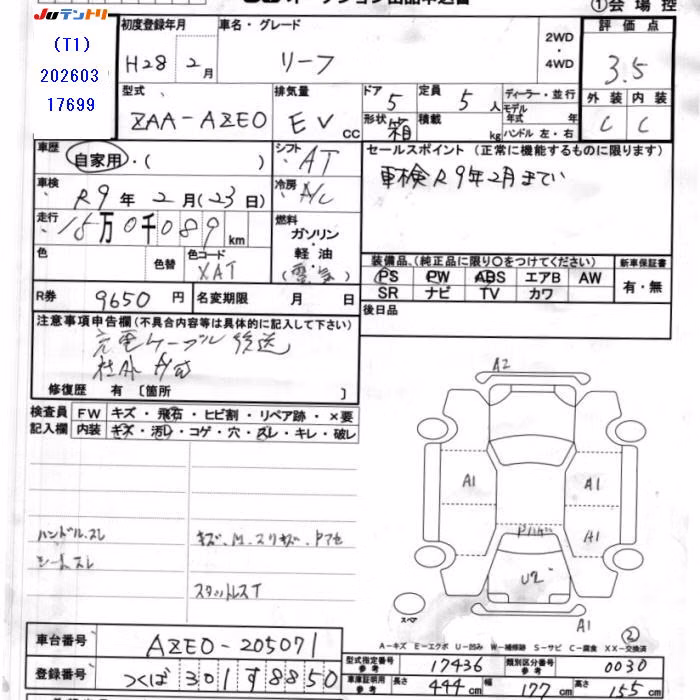 オークション出品申込書
①会場控
JUテントリー
(T1)
202603
17699
初度登録年月 H28年2月
車名・グレード リーフ
2WD・4WD
評価点 3.5
型式 ZAA-AZE0
排気量 EV CC
ドア 5
定員 5人
形状 箱
積載 kg
ディーラー・並行
モデル年式 年
ハンドル 左・右
外装 C 内装 C
車歴 自家用・( )
シフト AT
セールスポイント (正常に機能するものに限ります)
車検R9年2月まで
車検 R9年2月(23日)
冷房 A/C
走行 15万0千089km
燃料 ガソリン・軽油 (電気)
色
色替
色コード XAT
装備品 (純正品に限り○をつけてください)
PS PW ABS エアB AW
SR ナビ TV カワ
新車保証書 有・無
R券 9650円
名変期限 月 日
後日品
注意事項申告欄 (不具合内容等は具体的に記入して下さい)
充電ケーブル後送
修復歴 有 〔箇所 〕
検査員記入欄
FW キズ・飛石・ヒビ割・リペア跡・×要
内装 キズ・汚レ・コゲ・穴・スレ・キレ・破レ
ハンドル.スレ
シートスレ
スタットレスT
A2
A1
A1
A1
U2
A1
スペア
②
A-キズ E-エクボ U-凹み W-補修跡 S-サビ C-腐食 XX-交換済
車台番号 AZE0-205071
登録番号 つくば 301 す 8850
型式指定番号参考 17436
類別区分番号参考 0030
車庫証明用参考 長さ 444cm 幅 177cm 高さ 155cm